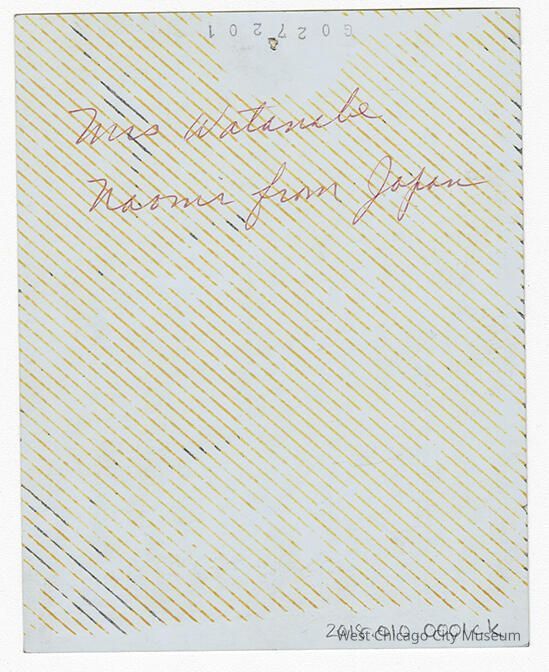 G027201
Mrs Watanabe
Naomi from Japan
West Chicago City Museum